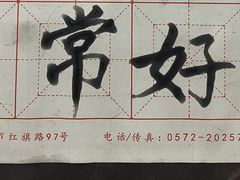 常好
市红旗路97号 电话/传真：0572-20257